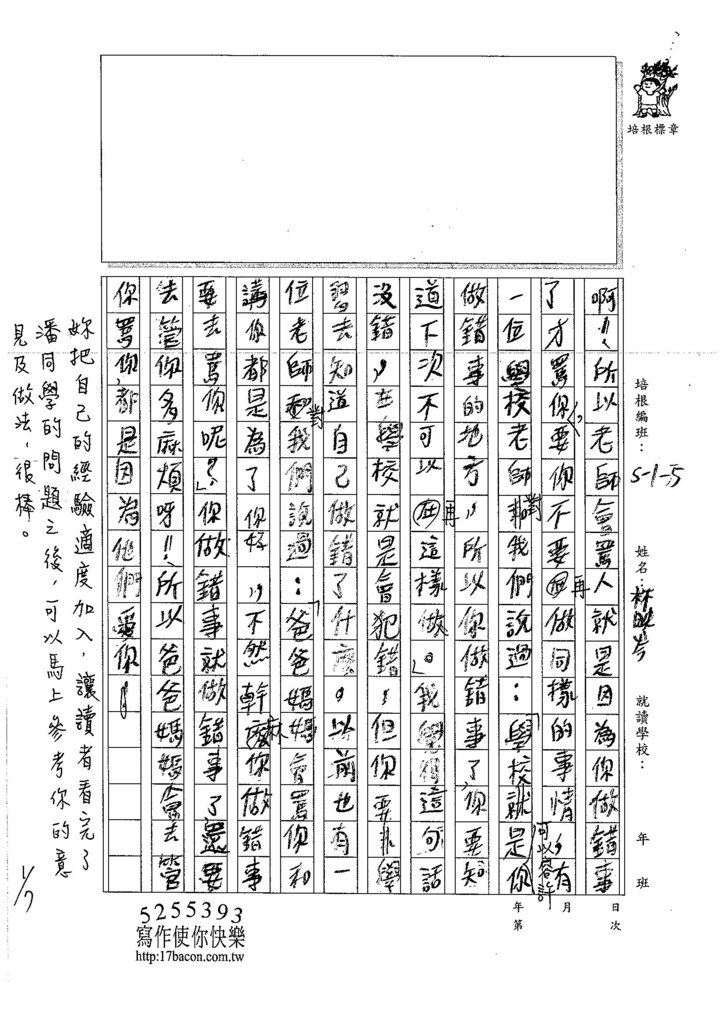 培根標章
培根編班：5-1-5
姓名：林
就讀學校：
年 班
啊!!所以老師會罵人就是因為你做錯事
了才罵你，要你不要再做同樣的事情，有
一位學校老師對我們說過：「學校就是你可以容許
做錯事的地方，所以你做錯事了，你要知
道下次不可以再這樣做。」我覺得這句話
沒錯，在學校就是會犯錯，但你要非學
習去知道自己做錯了什麼。以前也有一
位老師對我們說過：「爸爸媽媽會罵你和
講你都是為了你好，不然幹麻你做錯事
要去罵你呢？」你做錯事就做錯事了還要
去管你多麻煩呀!!所以爸爸媽媽會去管
你罵你，都是因為他們愛你！
妳把自己的經驗適度加入，讓讀者看完了
潘同學的問題之後，可以馬上參考你的意
見及做法，很棒。
1/7
年 月 日
第 次
5255393
寫作使你快樂
http:17bacon.com.tw